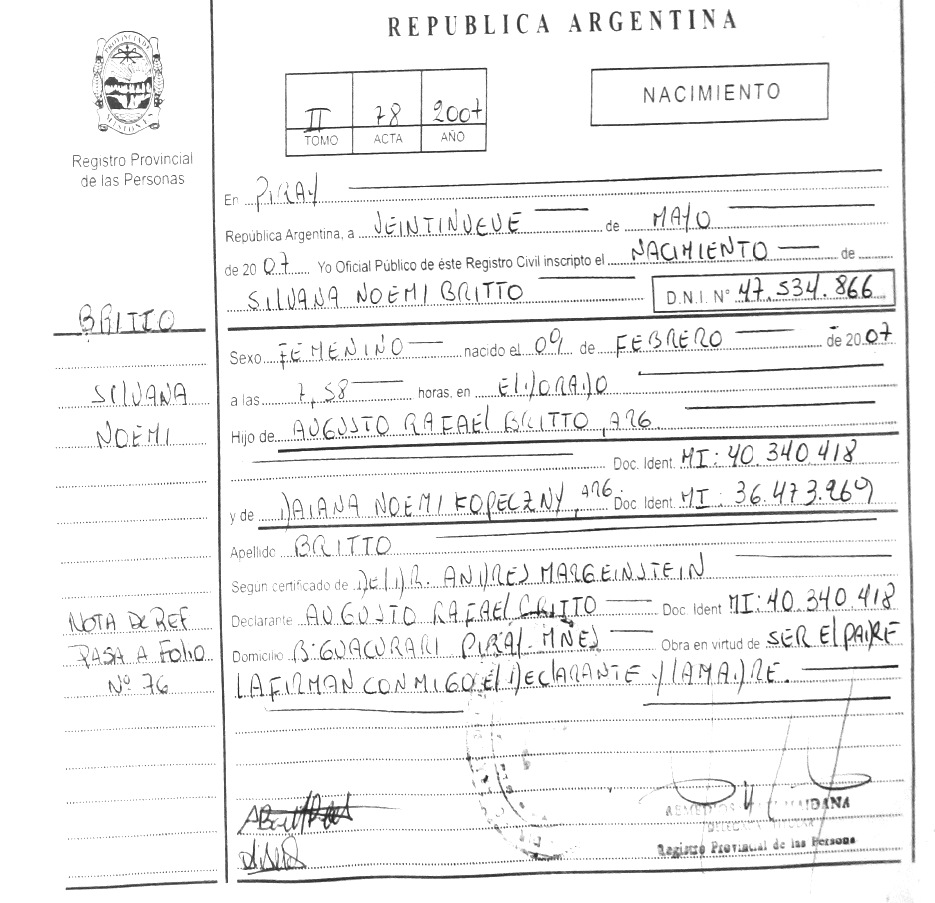 REPUBLICA ARGENTINA
PROVINCIA DE MISIONES
Registro Provincial
de las Personas
II 78 2007
TOMO ACTA AÑO
NACIMIENTO
En PIRAY
República Argentina, a VEINTINUEVE de MAYO
de 20 07 Yo Oficial Público de éste Registro Civil inscripto el NACIMIENTO de
SILVANA NOEMI BRITTO D.N.I. N° 47.534.866
BRITTO
SILVANA
NOEMI
Sexo FEMENINO nacido el 09 de FEBRERO de 2007
a las 7,58 horas, en ElDORADO
Hijo de AUGUSTO RAFAEl BRITTO, ARG
Doc. Ident. MI: 40.340.418
y de DAIANA NOEMI KOPECZNY, ARG. Doc. Ident MI: 36.473.969
Apellido BRITTO
Según certificado de DElDR. ANDRES MARGEINSTEIN
Declarante AUGUSTO RAFAEl BRITTO Doc. Ident MI: 40.340.418
Domicilio B: GUACURARI PIRAY-MNES Obra en virtud de SER El PADRE
LA FIRMAN CONMIGO El DECLARANTE Y LA MADRE.
NOTA DE REF
PASA A FOLIO
Nº 76
Registro Provincial de las Personas